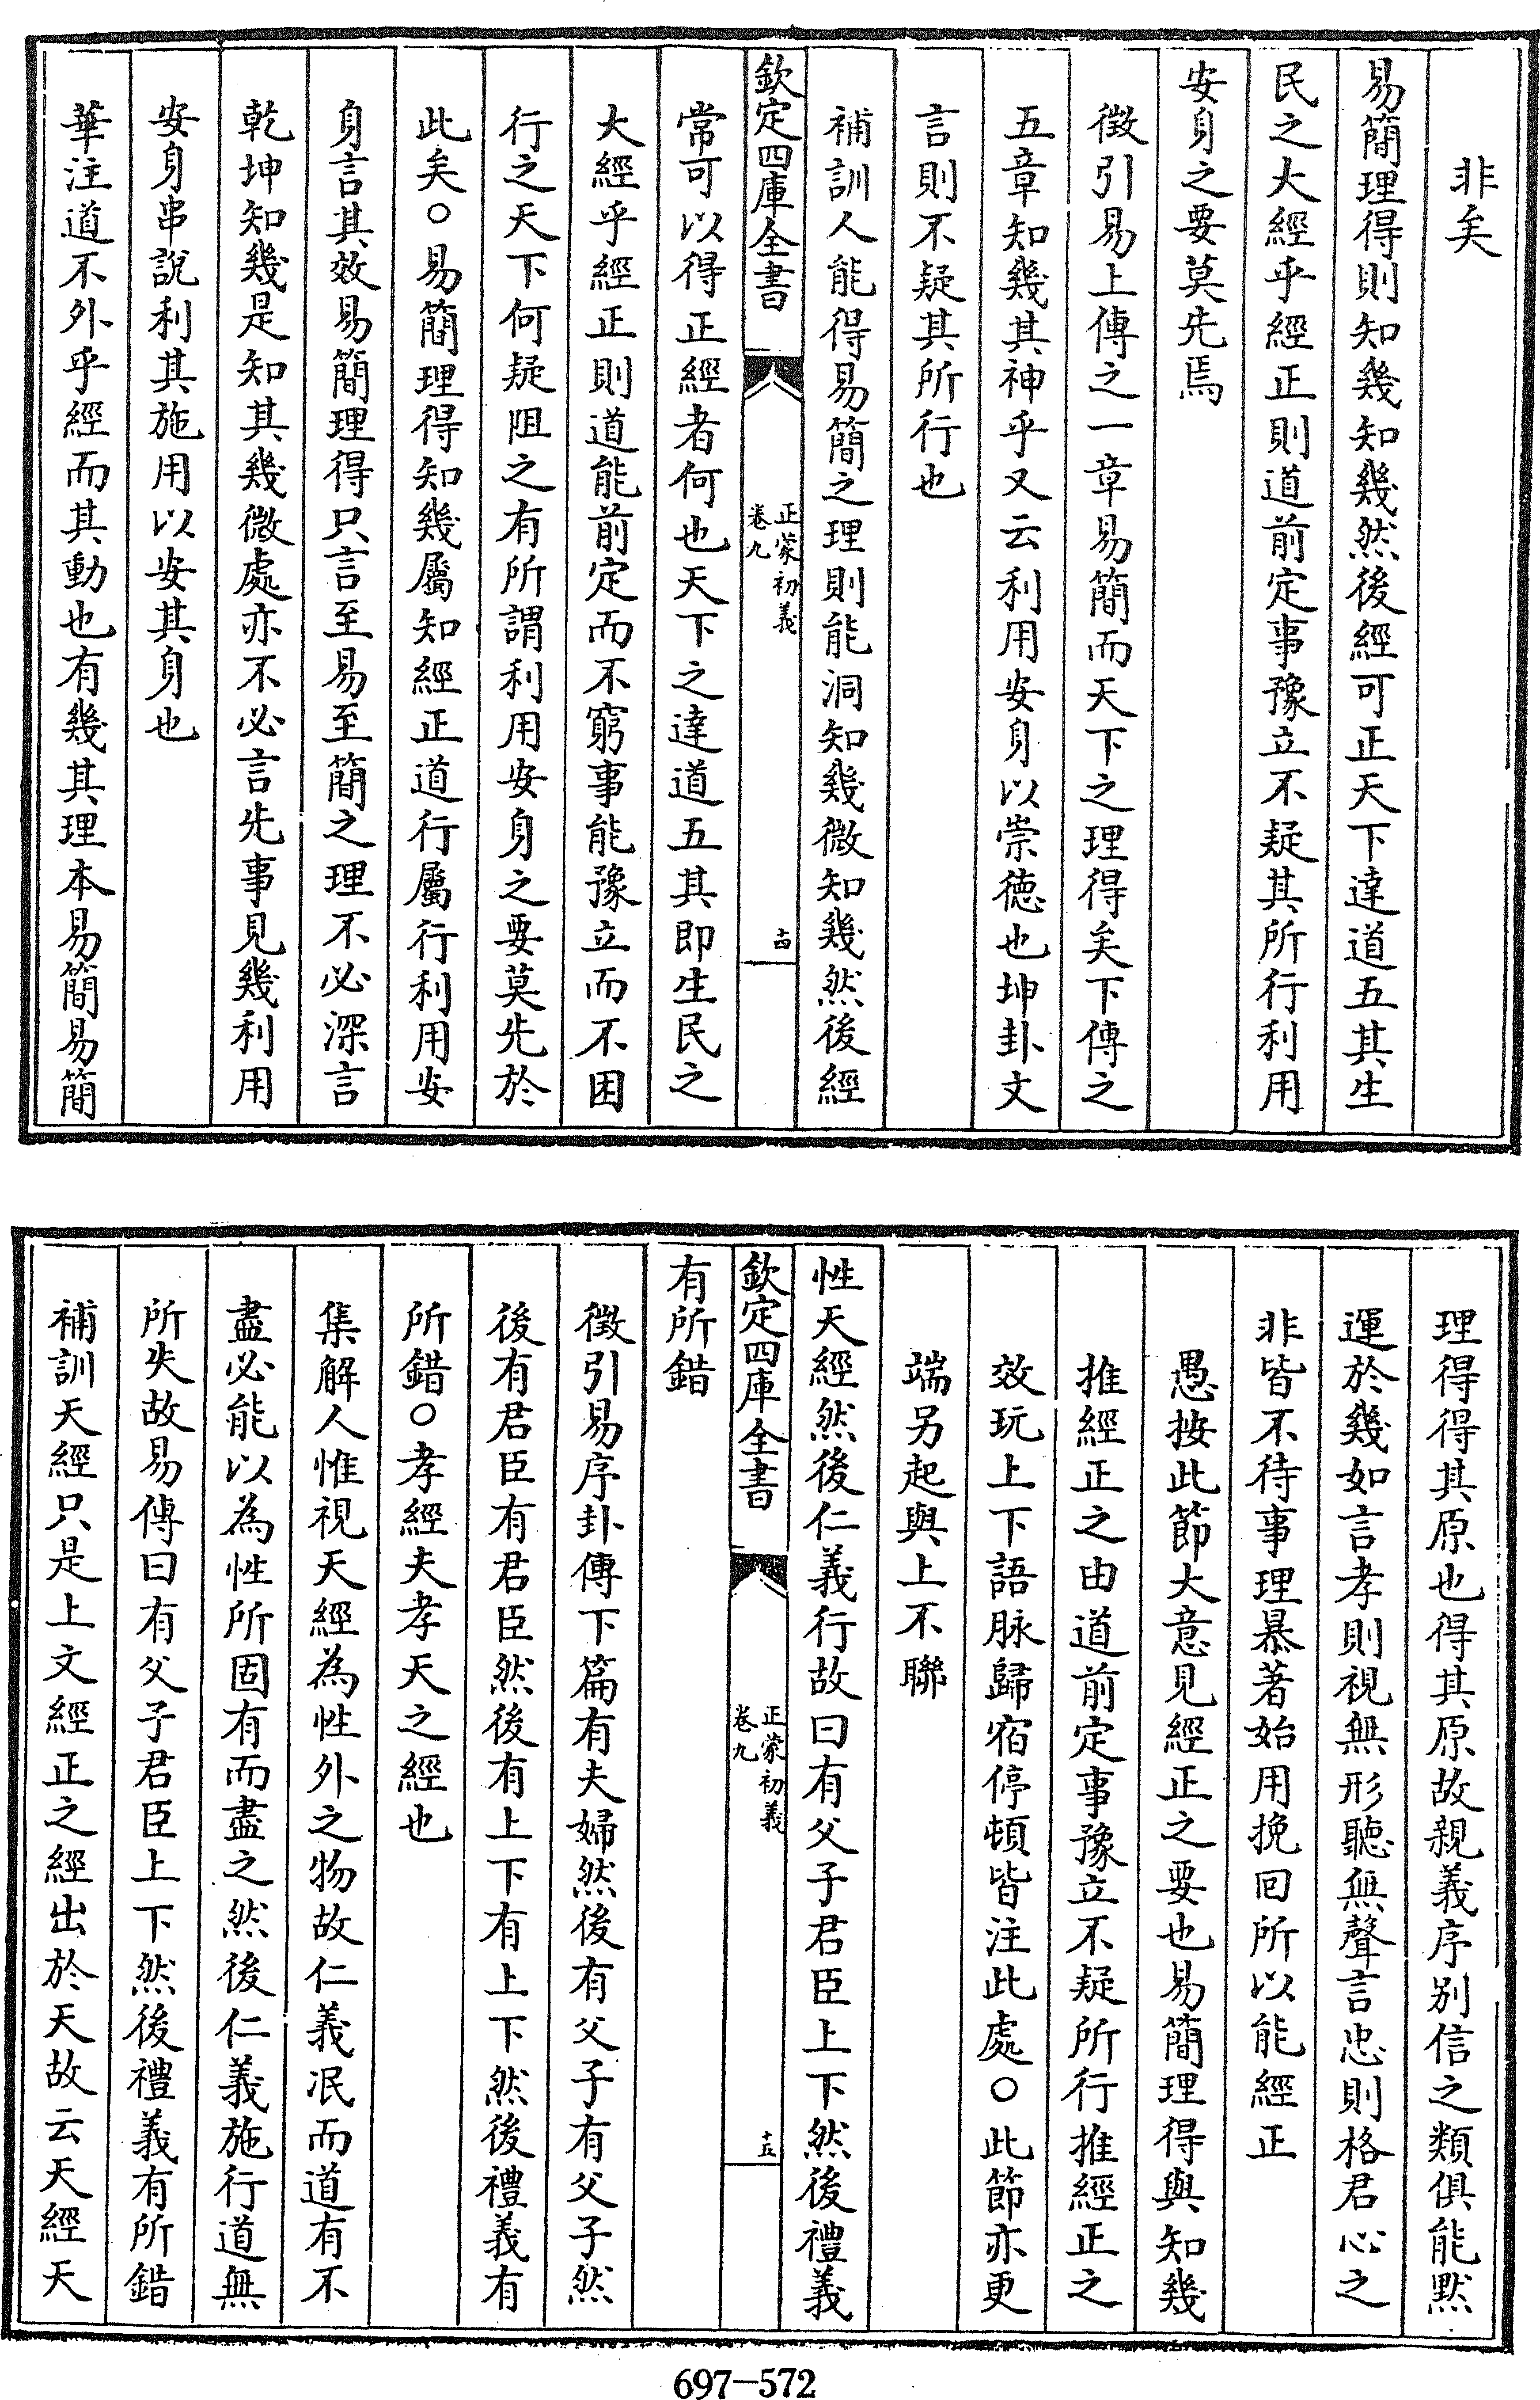 非矣
易簡理得則知幾知幾然後經可正天下達道五其生
民之大經乎經正則道前定事豫立不疑其所行利用
安身之要莫先焉
徵引易上傳之一章易簡而天下之理得矣下傳之
五章知幾其神乎又云利用安身以崇德也坤卦文
言則不疑其所行也
補訓人能得易簡之理則能洞知幾微知幾然後經
欽定四庫全書
正蒙初義
卷九
十四
常可以得正經者何也天下之達道五其即生民之
大經乎經正則道能前定而不窮事能豫立而不困
行之天下何疑阻之有所謂利用安身之要莫先於
此矣○易簡理得知幾屬知經正道行屬行利用安
身言其效易簡理得只言至易至簡之理不必深言
乾坤知幾是知其幾微處亦不必言先事見幾利用
安身串說利其施用以安其身也
華注道不外乎經而其動也有幾其理本易簡易簡
理得得其原也得其原故親義序别信之類俱能黙
運於幾如言孝則視無形聽無聲言忠則格君心之
非皆不待事理暴著始用挽回所以能經正
愚按此節大意見經正之要也易簡理得與知幾
推經正之由道前定事豫立不疑所行推經正之
效玩上下語脉歸宿停頓皆注此處○此節亦更
端另起與上不聯
性天經然後仁義行故曰有父子君臣上下然後禮義
欽定四庫全書
正蒙初義
卷九
十五
有所錯
徵引易序卦傳下篇有夫婦然後有父子有父子然
後有君臣有君臣然後有上下有上下然後禮義有
所錯○孝經夫孝天之經也
集解人惟視天經為性外之物故仁義泯而道有不
盡必能以為性所固有而盡之然後仁義施行道無
所失故易傳曰有父子君臣上下然後禮義有所錯
補訓天經只是上文經正之經出於天故云天經天
697-572